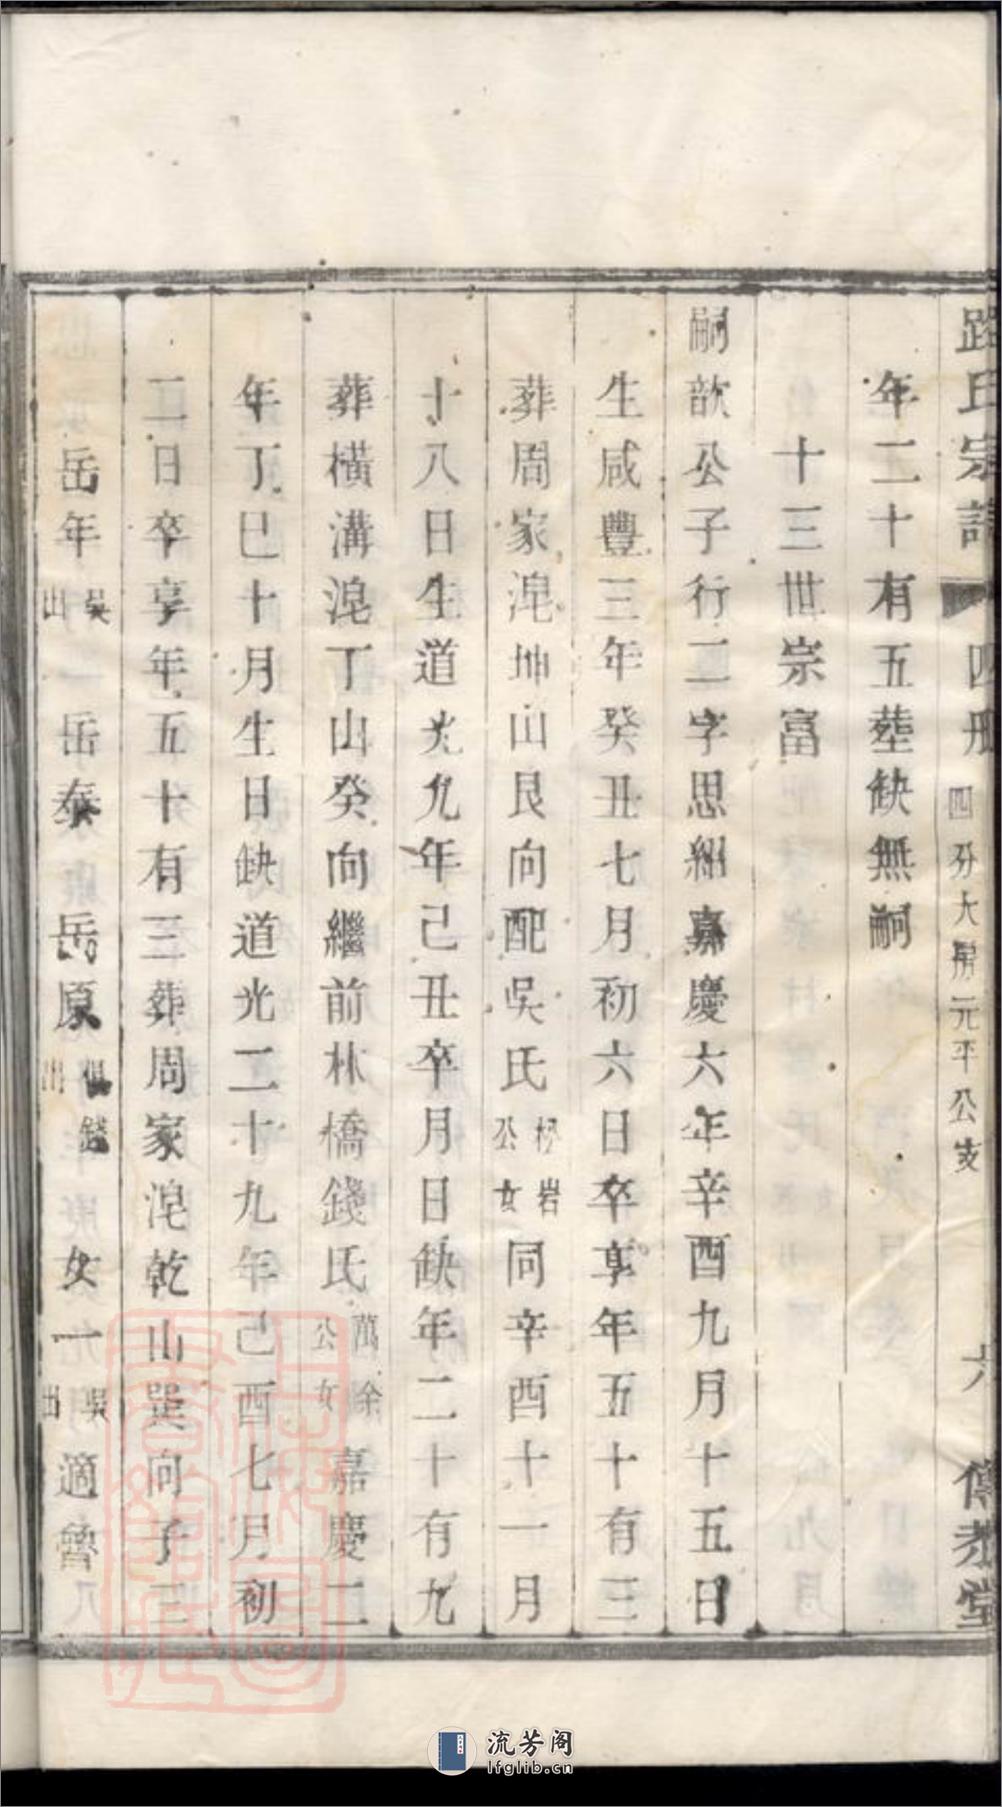 路氏宗譜 四册 四分大房元平公支 六 傳孝堂
年二十有五葬缺無嗣
十三世宗富
嗣歆公子行二字思紹嘉慶六年辛酉九月十五日
生咸豐三年癸丑七月初六日卒享年五十有三
葬周家滬坤山艮向配吳氏松岩公女同辛酉十一月
十八日生道光九年己丑卒月日缺年二十有九
葬橫溝滬丁山癸向繼前林橋錢氏萬余公女嘉慶二
年丁巳十月生日缺道光二十九年己酉七月初
二日卒享年五十有三葬周家滬乾山巽向子三
岳年吳出 岳泰 岳原俱錢出 女一吳出適魯
流芳阁
lfglib.cn